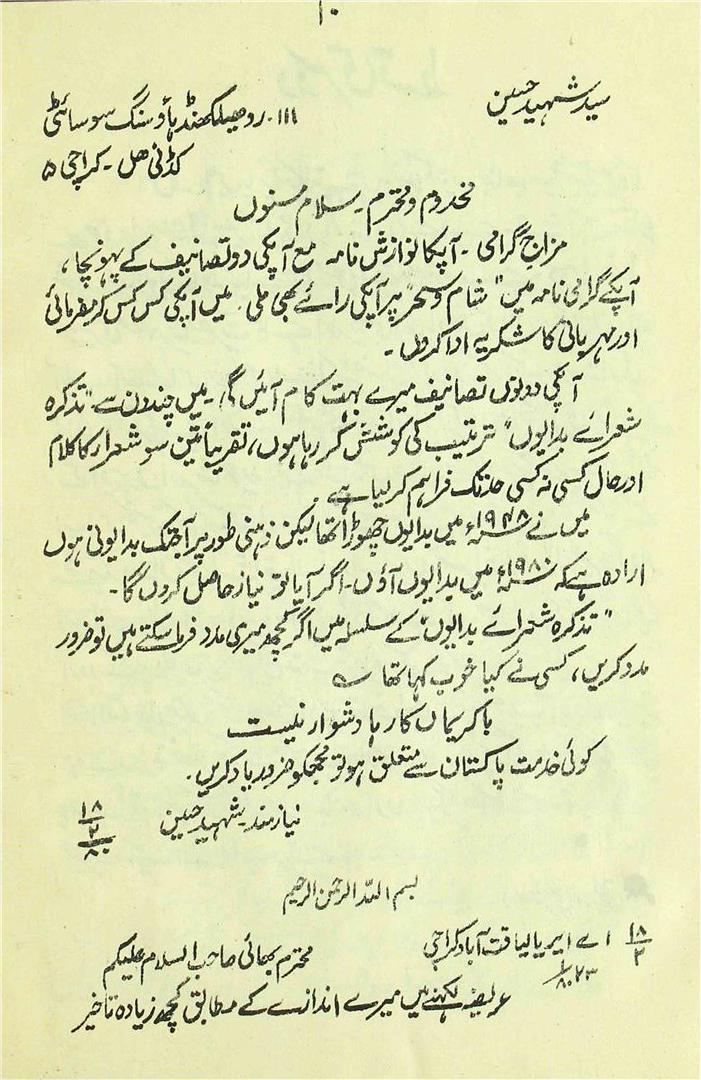 ۱۰
سید شہید حسین
۱۱۱۔ روھیلکھنڈ ہاؤسنگ سوسائٹی
کڈنی ھل ۔ کراچی ۵
مخدوم و محترم ۔ سلام مسنوں
مزاج گرامی ۔ آپکا نوازش نامہ مع آپکی دو تصانیف کے پہونچا،
آپکے گرامی نامہ میں "شام و سحر" پر آپکی رائے بھی ملی۔ میں آپکی کس کس کرمفرمائی
اور مہربانی کا شکریہ ادا کروں ۔
آپکی دونوں تصانیف میرے بہت کام آئیں گی ۔ میں چند دن سے "تذکرہ
شعرائے بدایوں" ترتیب کی کوشش کر رہا ہوں، تقریباً تین سو شعرار کا کلام
اور حال کسی نہ کسی حد تک فراہم کر لیا ہے ۔
میں نے ۱۹۴۸ء میں بدایوں چھوڑا تھا لیکن ذہنی طور پر آجتک بدایونی ہوں
ارادہ ہے کہ ۱۹۸۰ء میں بدایوں آؤں ۔ اگر آیا تو نیاز حاصل کروں گا ۔
"تذکرہ شعرائے بدایوں" کے سلسلہ میں اگر کچھ میری مدد فرما سکتے ہیں تو ضرور
مدد کریں، کسی نے کیا خوب کہا تھا ؎
با کریماں کار ہا دشوار نیست
کوئی خدمت پاکستان سے متعلق ہو تو مجھکو ضرور یاد کریں ۔
نیازمند ۔ شہید حسین
۱۸/۲/۸۰
بسم اللہ الرحمن الرحیم
۱۸/۲ اے ایریا لیاقت آباد کراچی
محترم بھائی صاحب السلام علیکم
عریضہ لکھنے میں میرے اندازے کے مطابق کچھ زیادہ تاخیر